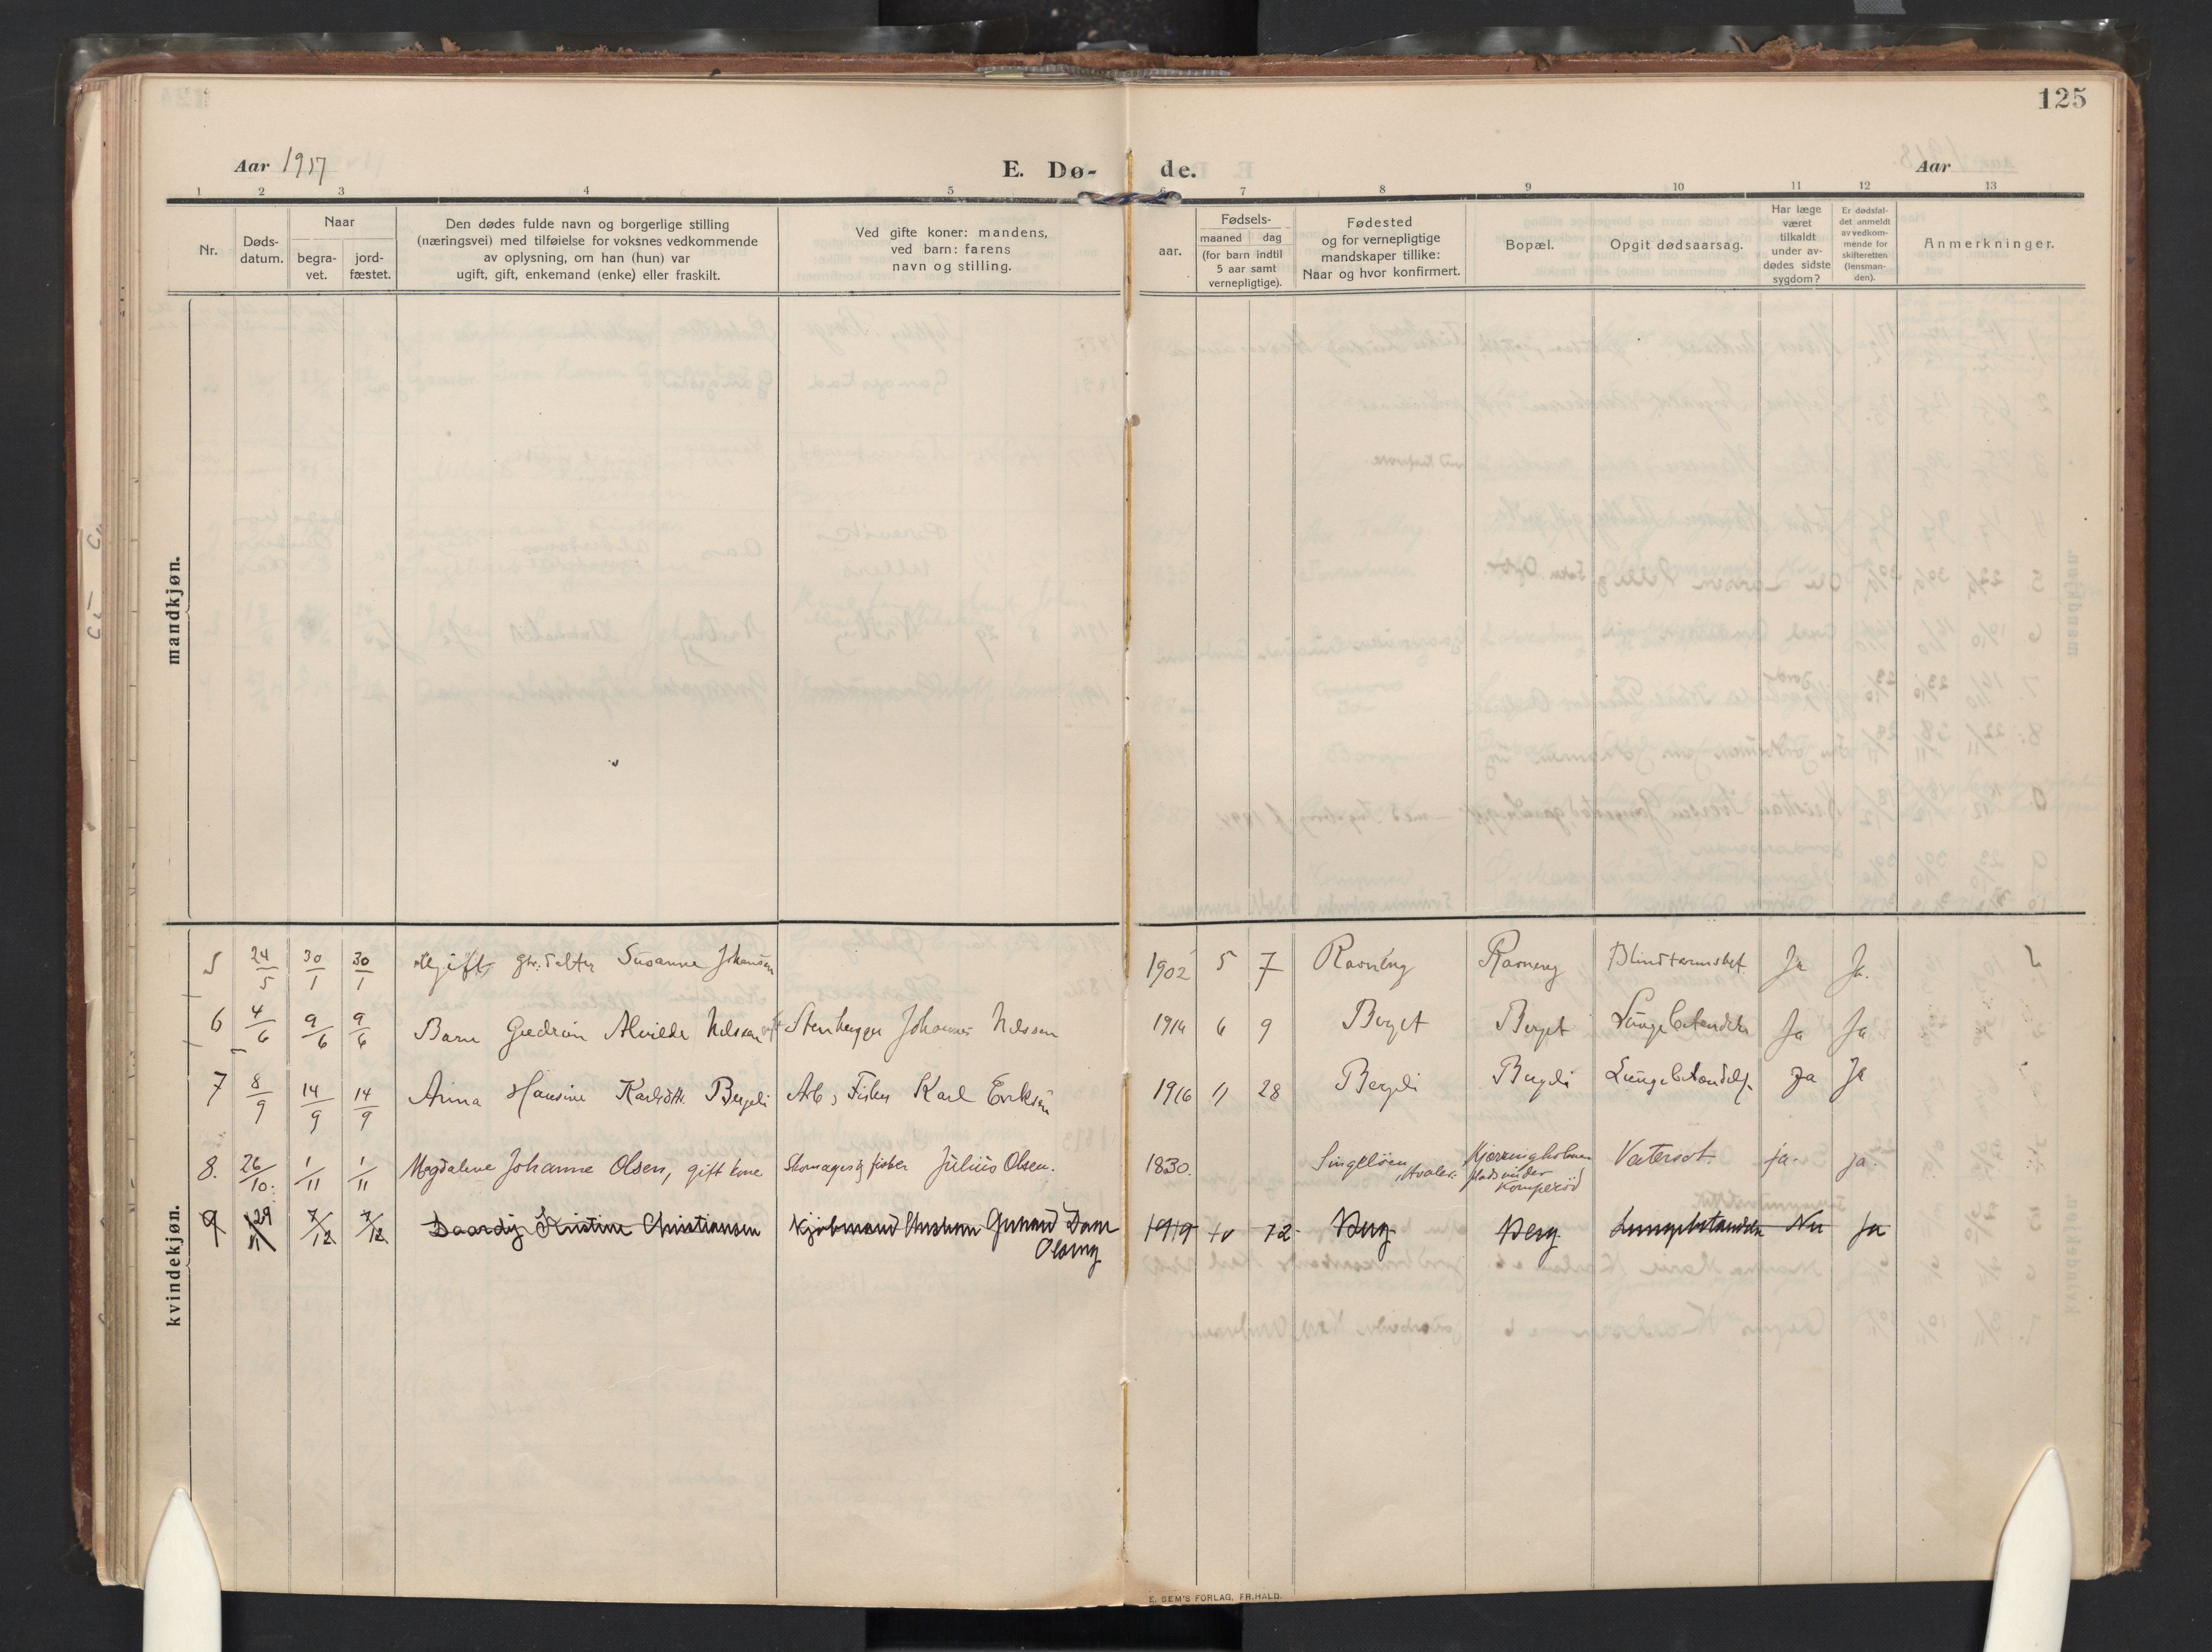 125
Aar 1917
E. Dø-
de.
Aar
1 2 3 4 5 6 7 8 9 10 11 12 13
Nr.
Døds-
datum.
Naar
begra-
vet.
jord-
fæstet.
Den dødes fulde navn og borgerlige stilling
(næringsvei) med tilføielse for voksnes vedkommende
av oplysning, om han (hun) var
ugift, gift, enkemand (enke) eller fraskilt.
Ved gifte koner: mandens,
ved barn: farens
navn og stilling.
aar.
Fødsels-
maaned dag
(for barn indtil
5 aar samt
vernepligtige).
Fødested
og for vernepligtige
mandskaper tillike:
Naar og hvor konfirmert.
Bopæl.
Opgit dødsaarsag.
Har læge
været
tilkaldt
under av-
dødes sidste
sygdom?
Er dødsfal-
det anmeldt
av vedkom-
mende for
skifteretten
(lensman-
den).
Anmerkninger.
mandkjøn.
kvindekjøn.
5 24/5 30/1 30/1 Ugift Susanne Johansen 1902 5 7 Ravneng Ravneng Blindtarmsbet. Ja Ja.
6 4/6 9/6 9/6 Barn Gudrun Alvilde Nilssen Stenhugger Johannes Nilssen 1914 6 9 Berget Berget Lungebetændelse Ja Ja
7 8/9 14/9 14/9 Anna Hansine Karlsdtr. Bergeli Arb, Fisker Karl Eriksen 1916 11 28 Bergeli Bergeli Lungebetændelse Ja Ja
8. 26/10. 1/11 1/11 Magdalene Johanne Olsen, gift kone Skomager og fisker Julius Olsen. 1830. Singeløen, Hvaler. Kjærringholmen
plads under
Kompærød Vatersot. ja. ja.
9 29/11 7/12 7/12 Kristine Christiansen Kjøbmand Gunard Dam
Olsøng 1919 10 12 Berg Berg Lungebetændelse Nei Ja
E. SEM'S FORLAG, FR.HALD.